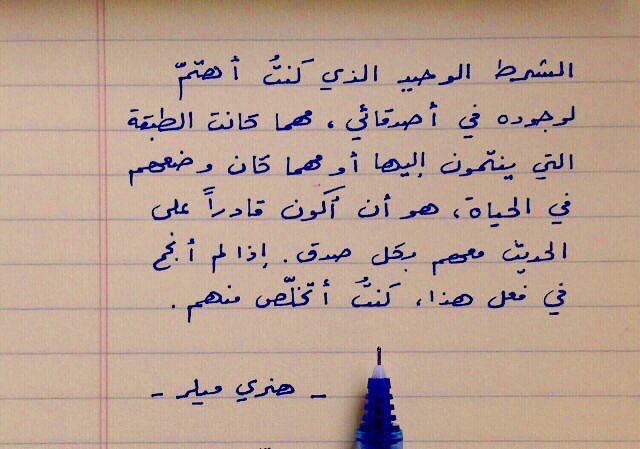 الشرط الوحيد الذي كنتُ أهتمّ
لوجوده في أصدقائي، مهما كانت الطبقة
التي ينتمون إليها أو مهما كان وضعهم
في الحياة، هو أن أكون قادراً على
الحديث معهم بكل صدق. إذا لم أنجح
في فعل هذا، كنتُ أتخلّص منهم.
- هنري ميلر -